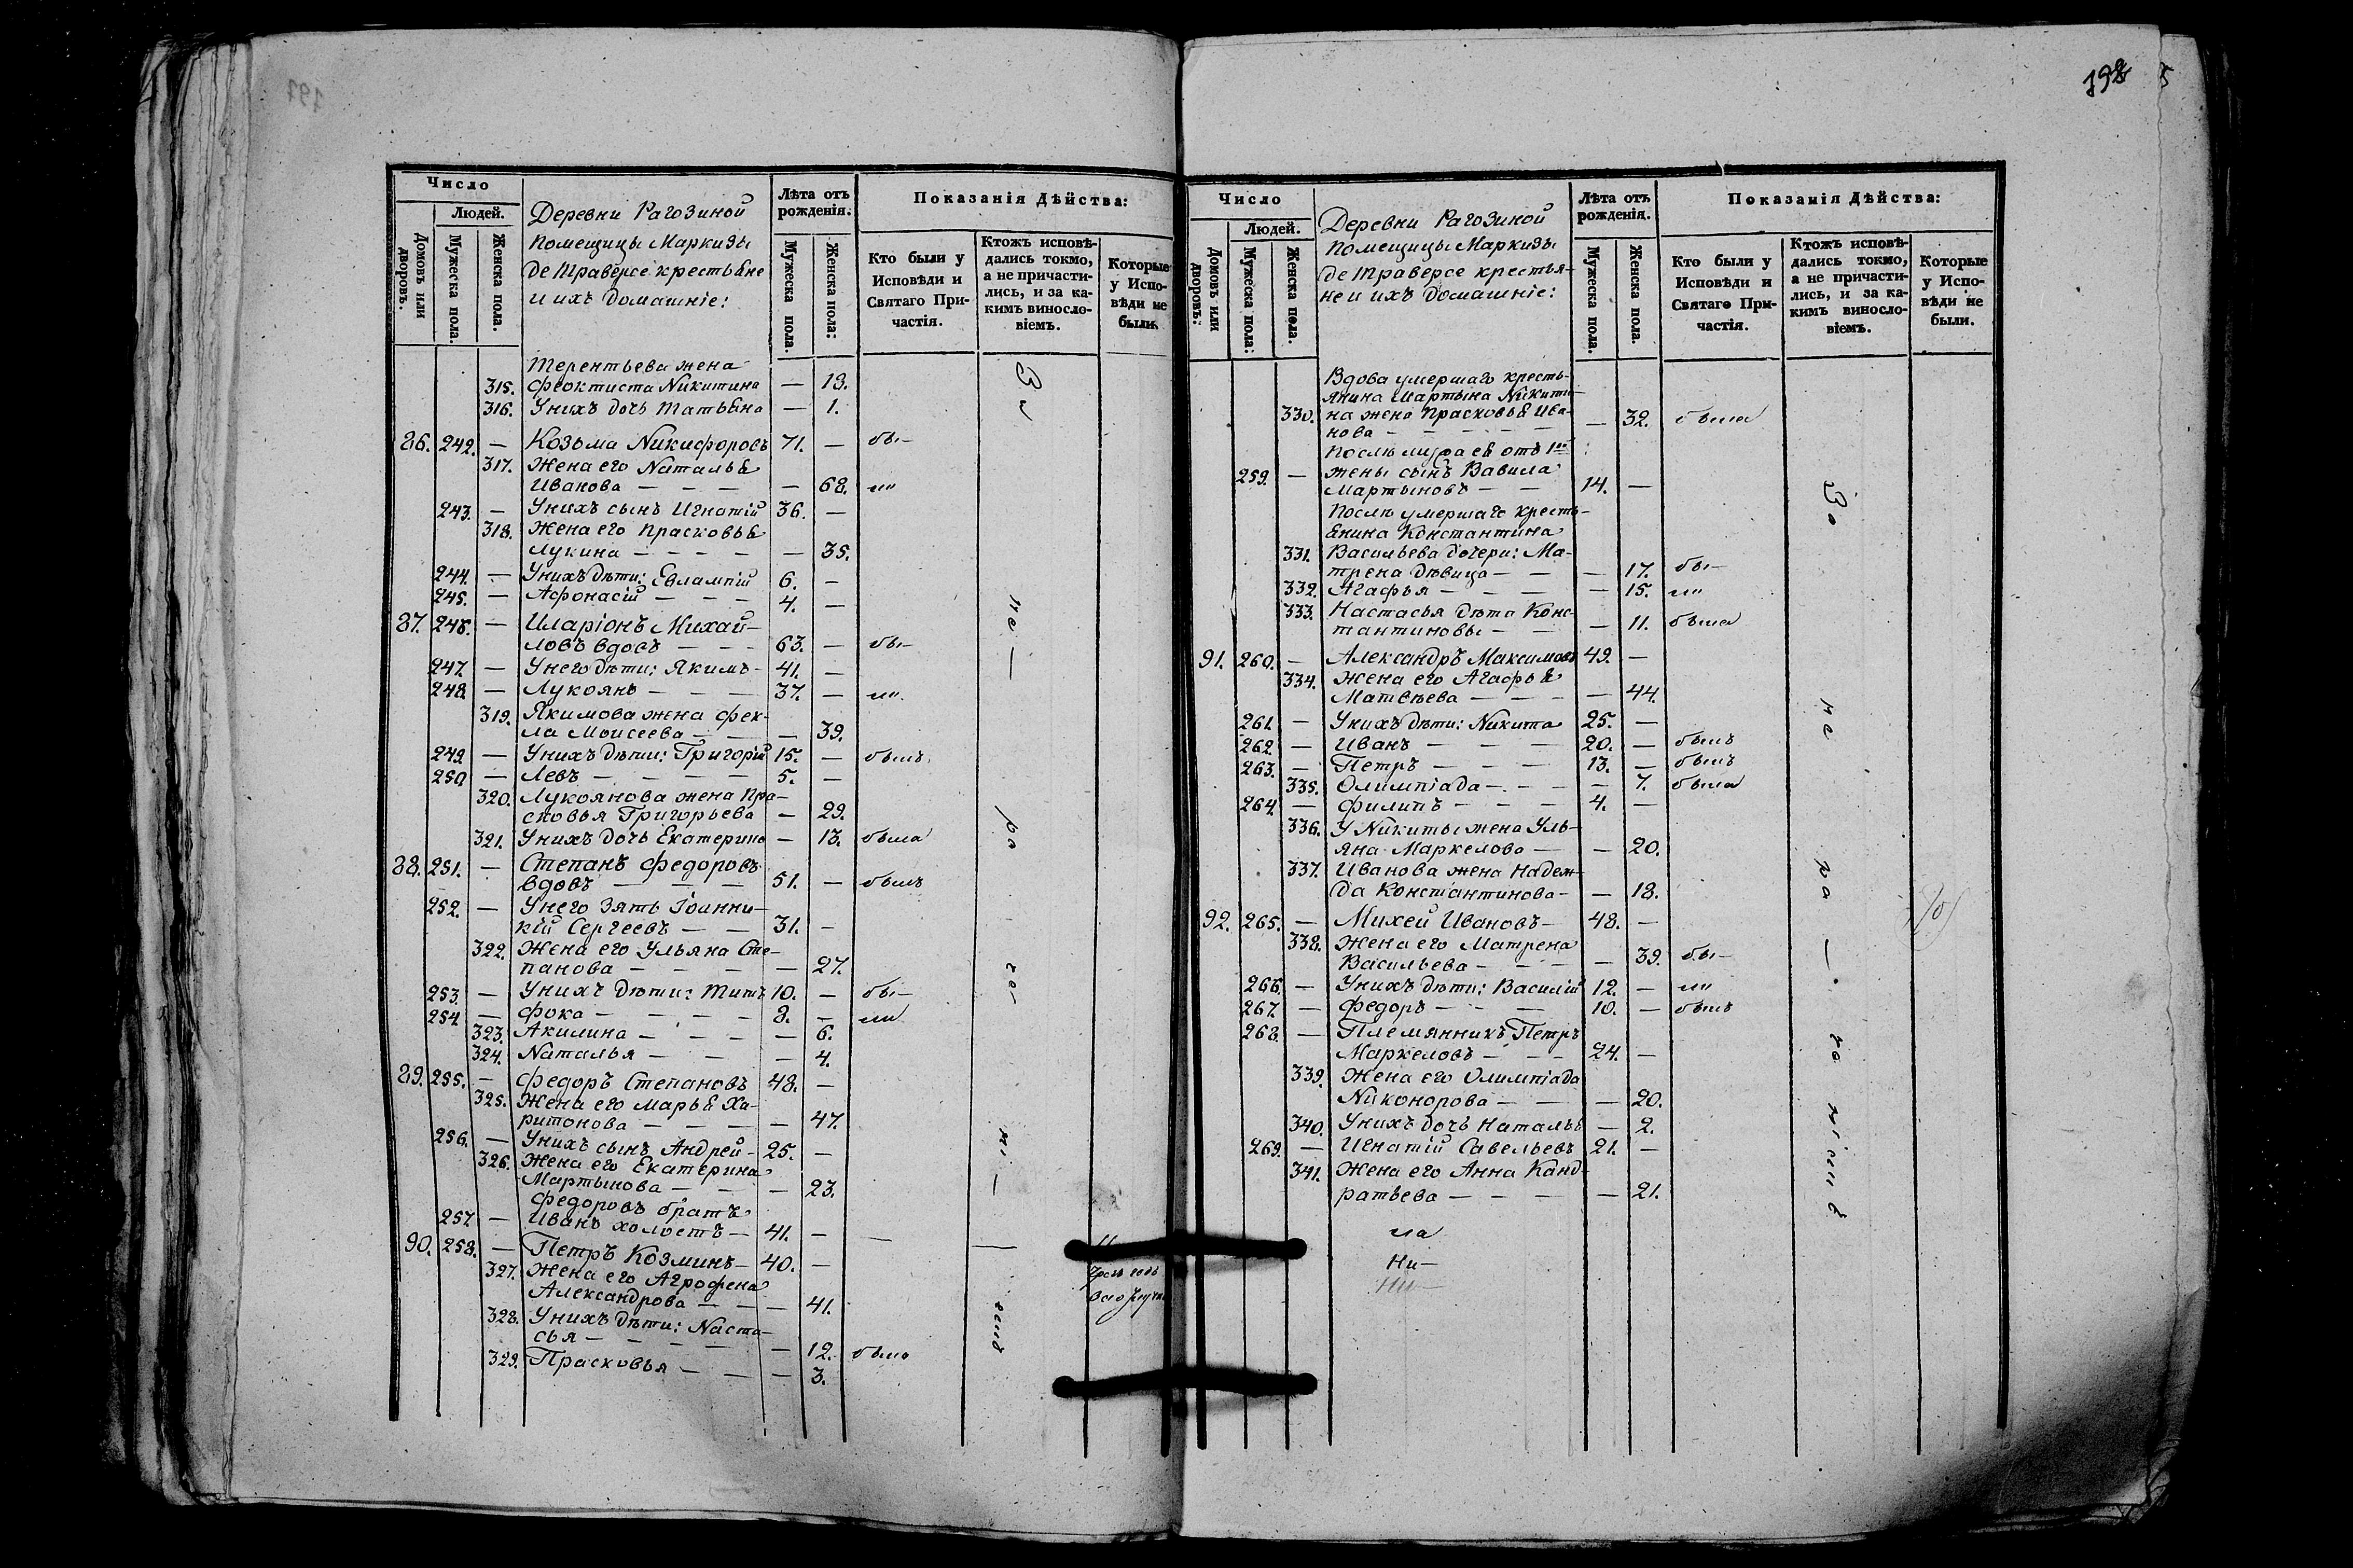 198
Число
Людей.
Домовъ или дворовъ.
Мужеска пола.
Женска пола.
Деревни Рагозиной
помещицы Маркизы
де Траверсе крестьяне
и ихъ домашніе:
Лѣта отъ рожденія.
Мужеска пола.
Женска пола:
Показанія Дѣйства:
Кто были у
Исповѣди и
Святаго При-
частія.
Ктожъ исповѣ-
дались токмо,
а не причасти-
лись, и за ка-
кимъ винословіемъ.
Которые
у Испо-
вѣди не
были.
Терентьева жена
315. Феоктиста Никитина — 18.
316. У нихъ дочь Татьяна — 1.
86. 242. — Козьма Никифоровъ 71. — бы—
317. Жена его Наталья
Иванова — — — — 68. ли
243. — У нихъ сынъ Игнатій 36. —
318. Жена его Прасковья
Лукина — — — — 35.
244. — У нихъ дѣти: Евлампій 6. —
245. — Афонасій — — — 4. —
87. 246. — Иларіонъ Михай-
ловъ вдовъ — — — 63. — бы—
247. — У него дѣти: Якимъ — 41. —
248. — Лукоянъ — — — 37. — ли.
319. Якимова жена Фек-
ла Моисеева — — — 39.
249. — У нихъ дѣти: Григорій 15. — былъ
250 — Левъ — — — — 5. —
320. Лукоянова жена Пра-
сковья Григорьева — 29.
321. У нихъ дочь Екатерина — 13. была
88. 251. — Степанъ Федоровъ
вдовъ — — — 51. — былъ
252. — У него зять Іоанни-
кій Сергеевъ — — 31. —
322. Жена его Ульяна Сте-
панова — — — — 27.
253. — У нихъ дѣти: Титъ 10. — бы—
254 — Фока — — — — 8. — ли
323. Акилина — — — — 6.
324. Наталья — — — 4.
89. 255. — Федоръ Степановъ 48. —
325. Жена его Марья Ха-
ритонова — — — — 47.
256. — У нихъ сынъ Андрей — 25. —
326. Жена его Екатерина
Мартынова — — — 23.
Федоровъ братъ
257 — Иванъ холостъ — 41. — —
90. 258. — Петръ Козминъ — 40. —
327. Жена его Агрофена
Александрова — — — 41.
328. У нихъ дѣти: Наста-
сья — — — — 12. была
329. Прасковья — — — 3.
Число
Людей.
Домовъ или дворовъ:
Мужеска пола:
Женска пола.
Деревни Рагозиной
помещицы Маркизы
де Траверсе крестья-
не и ихъ домашніе:
Лѣта отъ рожденія.
Мужеска пола.
Женска пола.
Показанія Дѣйства:
Кто были у
Исповѣди и
Святаго При-
частія.
Ктожъ исповѣ-
дались токмо,
а не причасти-
лись, и за ка-
кимъ винословіемъ.
Которые
у Испо-
вѣди не
были.
Вдова умершаго кресть-
янина Мартына Никити-
330. на жена Прасковья Ива-
нова — — — — — 32. была
259. — жены сынъ Вавила
Мартыновъ — — 14. —
Послѣ умершаго кресть-
янина Константина
331. Васильева дочери: Ма-
трена дѣвица — — — 17. бы—
332. Агафья — — — — 15. ли
333. Настасья дѣта Конс-
тантиновы — — — 11. была
91. 260. — Александръ Максимовъ 49. —
334. Жена его Агафья
Матвѣева — — — — 44.
261. — У нихъ дѣти: Никита 25. —
262. — Иванъ — — — 20. — былъ
263. — Петръ — — — 13. — былъ
335. Олимпіада — — — — 7. была
264. — Филипъ — — — 4. —
336. У Никиты жена Уль-
яна Маркелова — — 20.
337. Иванова жена Надеж-
да Константинова — — 18.
92. 265. — Михей Ивановъ — 48. —
338. Жена его Матрена
Васильева — — — — 39. бы—
266. — У нихъ дѣти: Василій 12. — ли
267 — Федоръ — — — 10. — былъ
268. — Племянникъ Петръ
Маркеловъ — — — 24. —
339. Жена его Олимпіада
Никонорова — — — 20.
340. У нихъ дочь Наталья — 2.
269. — Игнатій Савельевъ 21. —
341. Жена его Анна Канд-
ратьева — — — — 21.